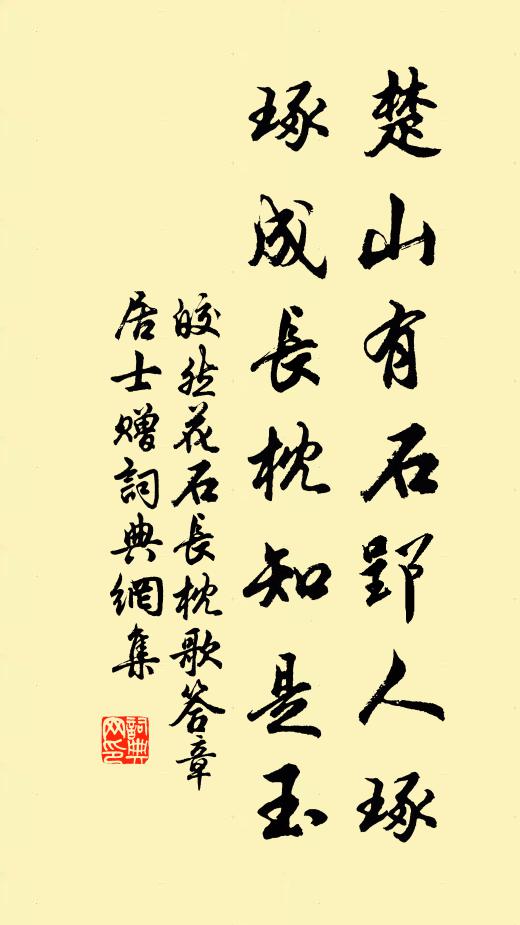 楚山有石郢人琢
琢成長枕知是玉
皎然花石長枕歌答章
居士贈詞典網集
詞典
网印